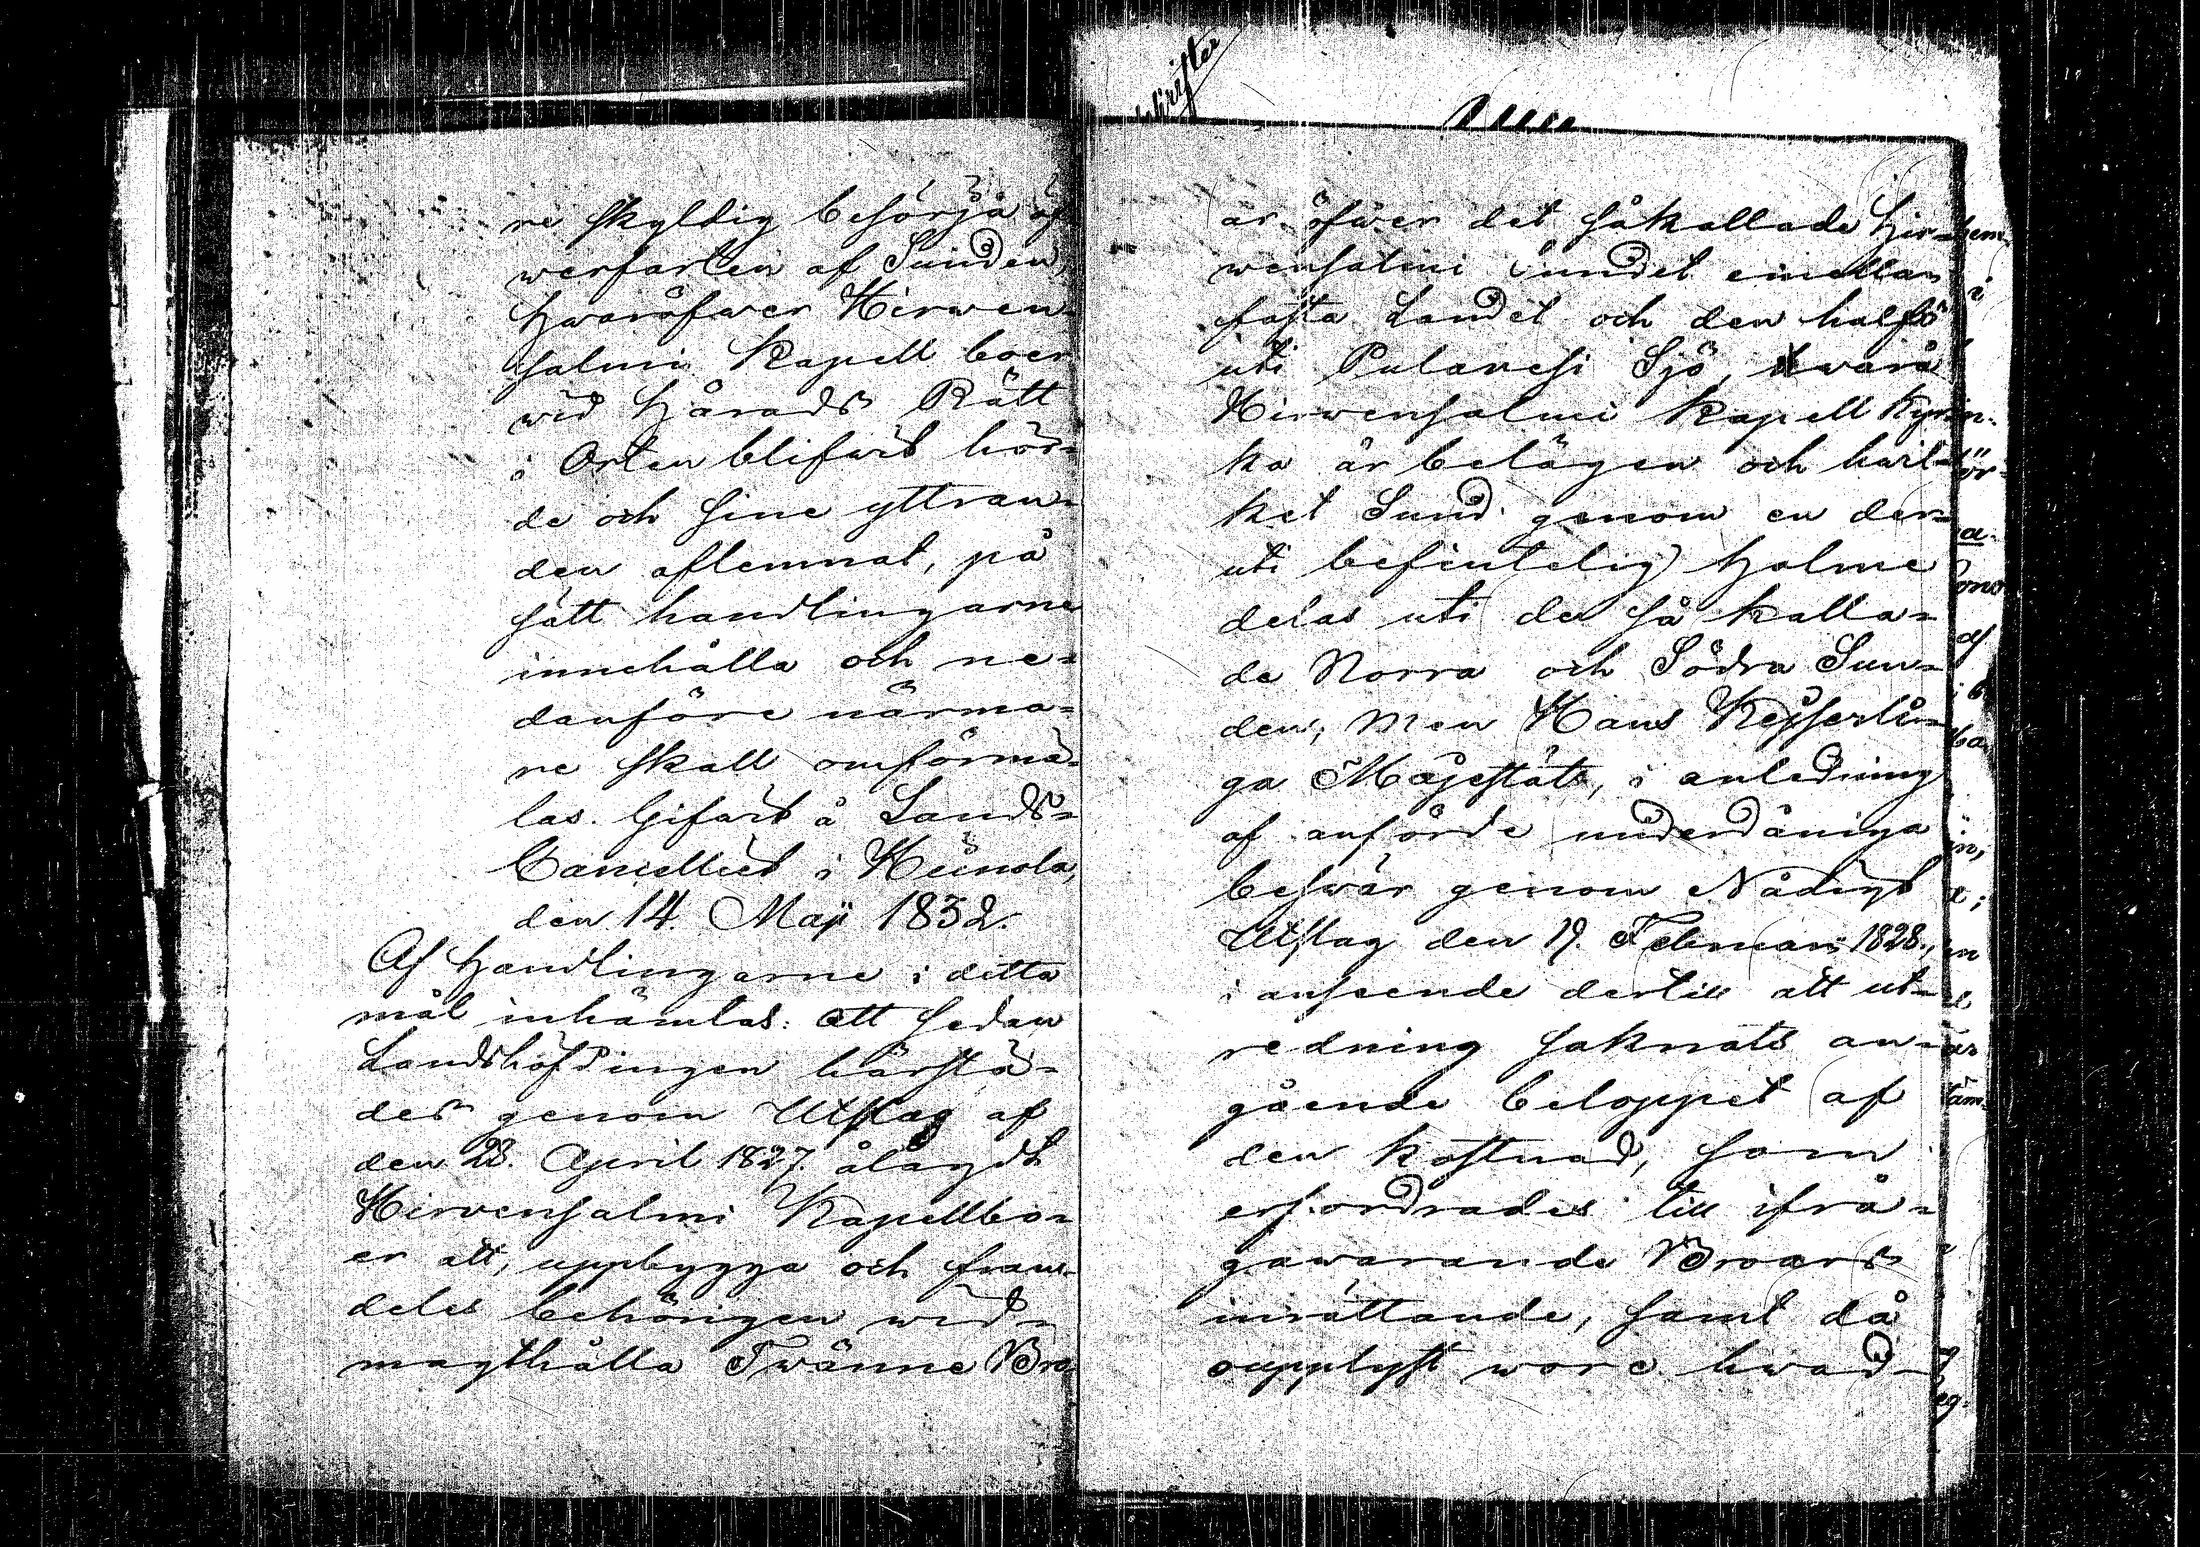 re skyldig besörja öf
werfarten af Sunden,
hwaröfwer Hirwen-
salmi Kapell boer
wid Härads Rätt
i Orten blifwit hör-
de och sine yttran-
den aflemnat, på
sätt handlingarne
innehålla och ne-
danföre närma-
re skall omförmä-
las. Gifwit å Lands-
Cancelliet i Heinola,
den 14. Maji 1832.
Af Handlingarne i detta
mål inhämtas: att sedan
Landshöfdingen härstä-
des genom Utslag af
den 23. April 1827. ålagdt
Hirvensalmi Kapellbo-
er att, uppbygga och fram-
deles behörigen wid-
magthålla Twänne Bro
ar öfwer det såkallade Hir-
wensalmi Sundet emellan
fasta Landet och den halfö
uti Pulawesi Sjö, hwarå
Hirwensalmi Kapell Kyr-
ka är belägen och hwil-
ket Sund genom en der-
uti befintelig Holme
delas uti de så kalla-
de Norra och Södra Sun-
den; Men Hans Kejserli-
ga Majestät, i anledning
af anförde underdåniga
beswär genom Nådigt
Utslag den 19. Februari 1828.,
i anseende dertill att ut-
redning saknats an-
gående beloppet af
den kostnad, som
erfordrades till ifrå-
gawarande Broars
inrättande, samt då
oupplyst wore hwad